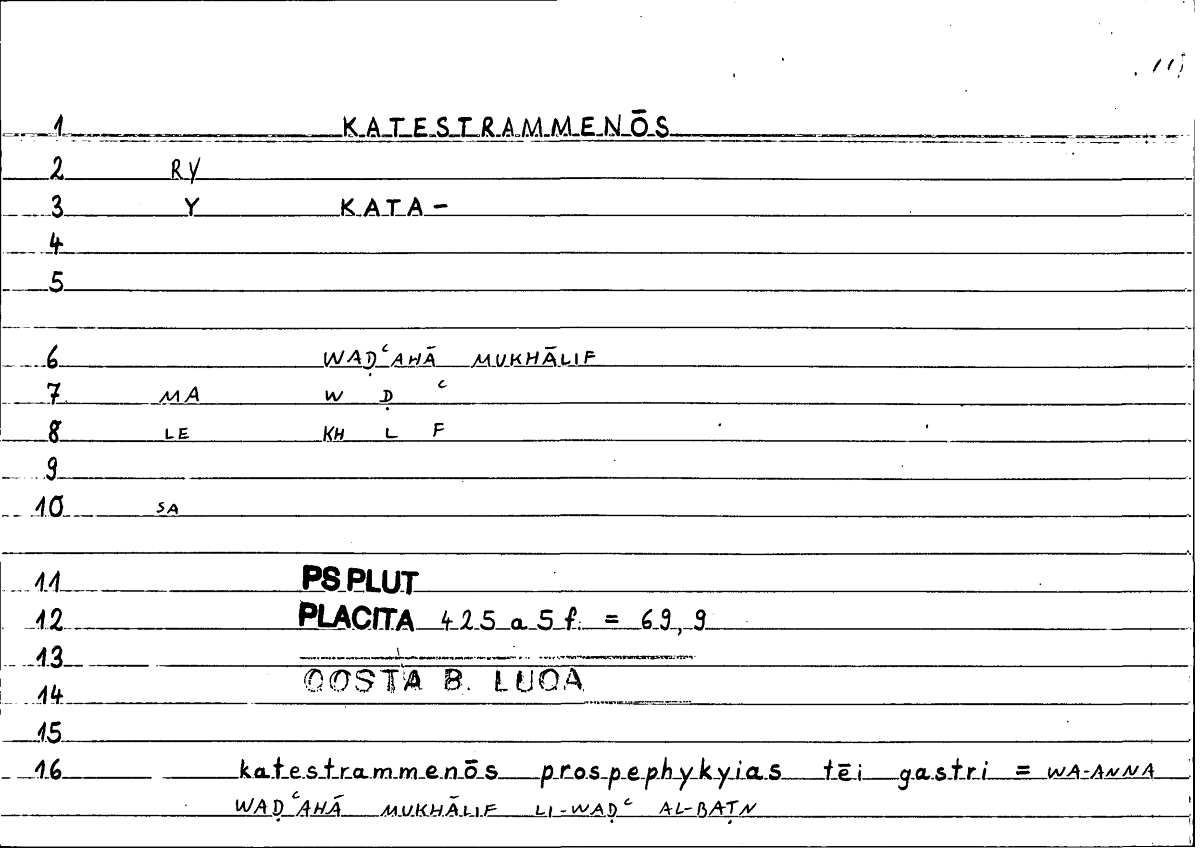 1 KATESTRAMMENŌS
2 RY
3 Y KATA-
4
5
6 WAḌʿAHĀ MUKHĀLIF
7 MA W Ḍ ʿ
8 LE KH L F
9
10 SA
11 PS PLUT
12 PLACITA 425 a 5 f. = 69,9
13
QOSTA B. LUQA
14
15
16 katestrammenōs prospephykyias tēi gastri = WA-ANNA
WAḌʿAHĀ MUKHĀLIF LI-WAḌʿ AL-BAṬN